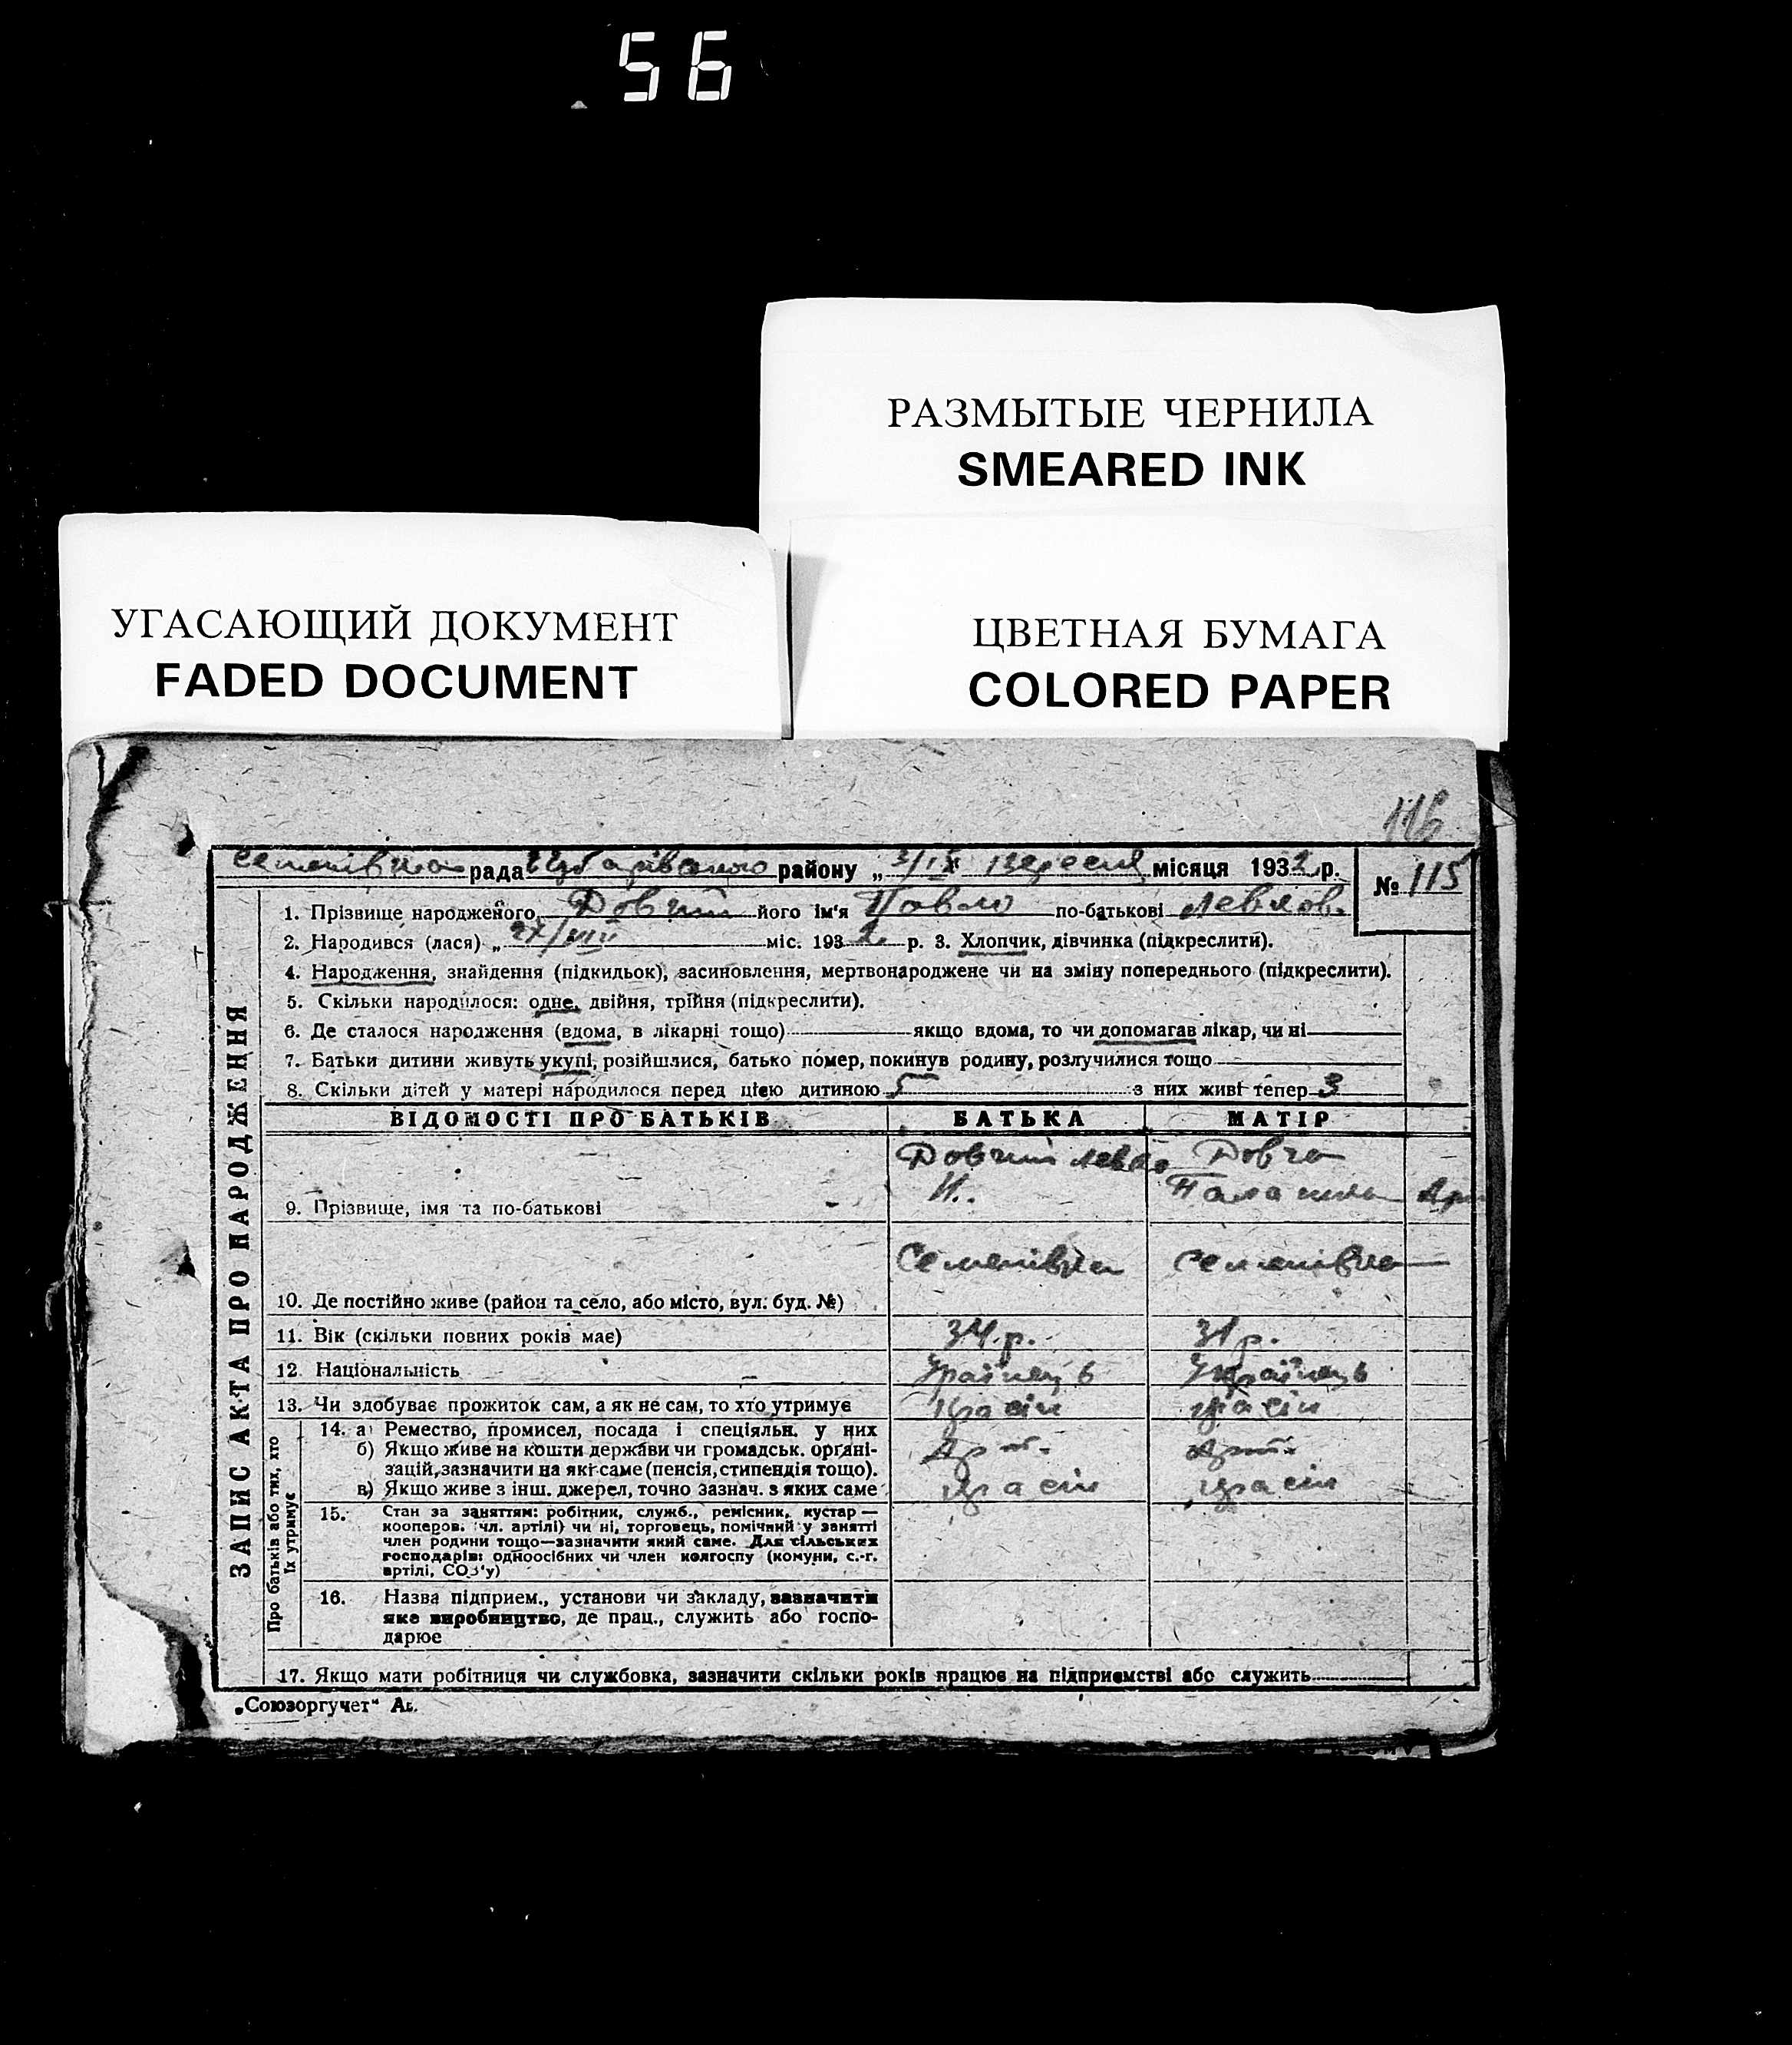 56
РАЗМЫТЫЕ ЧЕРНИЛА
SMEARED INK
УГАСАЮЩИЙ ДОКУМЕНТ
FADED DOCUMENT
ЦВЕТНАЯ БУМАГА
COLORED PAPER
116
рада району „ 3/IX вересня місяця 1932 р.
№ 115
1. Прізвище народженого Довгий його ім'я Павло по-батькові Левков.
2. Народився (лася) „ 27/VIII міс. 1932 р. 3. Хлопчик, дівчинка (підкреслити).
4. Народження, знайдення (підкидьок), засиновлення, мертвонароджене чи на зміну попереднього (підкреслити).
5. Скільки народилося: одне, двійня, трійня (підкреслити).
6. Де сталося народження (вдома, в лікарні тощо) якщо вдома, то чи допомагав лікар, чи ні
7. Батьки дитини живуть укупі, розійшлися, батько помер, покинув родину, розлучилися тощо
8. Скільки дітей у матері народилося перед цією дитиною 5 з них живі тепер 3
ЗАПИС АКТА ПРО НАРОДЖЕННЯ
ВІДОМОСТІ ПРО БАТЬКІВ БАТЬКА МАТІР
9. Прізвище, імя та по-батькові Довгий Левко И. Довга
10. Де постійно живе (район та село, або місто, вул. буд. №) Семенівка Семенівка
11. Вік (скільки повних років має) 34 р. 31 р.
12. Національність Українець
13. Чи здобуває прожиток сам, а як не сам, то хто утримує
Про батьків або тих, хто їх утримує
14. а) Ремество, промисел, посада і спеціяльн. у них
б) Якщо живе на кошти держави чи громадськ. органі-
зацій, зазначити на які саме (пенсія, стипендія тощо).
в) Якщо живе з інш. джерел, точно зазнач. з яких саме
15. Стан за заняттям: робітник, служб., ремісник, кустар —
кооперов. (чл. артілі) чи ні, торговець, помічний у занятті
член родини тощо—зазначити який саме. Для сільських
господарів: одноосібних чи член колгоспу (комуни, с.-г.
артілі, СОЗ'у)
16. Назва підприєм., установи чи закладу, зазначити
яке виробництво, де прац., служить або госпо-
дарює
17. Якщо мати робітниця чи службовка, зазначити скільки років працює на підприємстві або служить
„Союзоргучет“